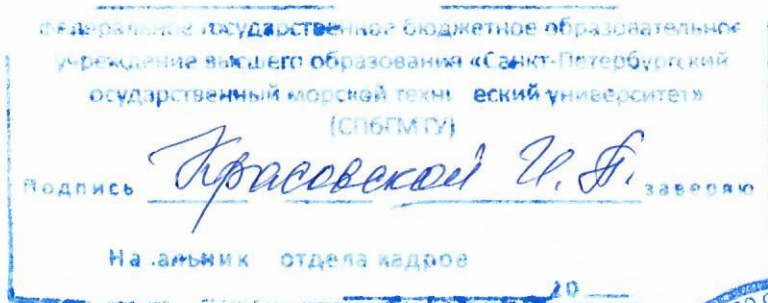 федеральное государственное бюджетное образовательное
учреждение высшего образования «Санкт-Петербургский
осударственный морской техн еский университет»
(СПбГМТУ)
Подпись Красовской И. П. заверяю
На альник отдела кадров
20